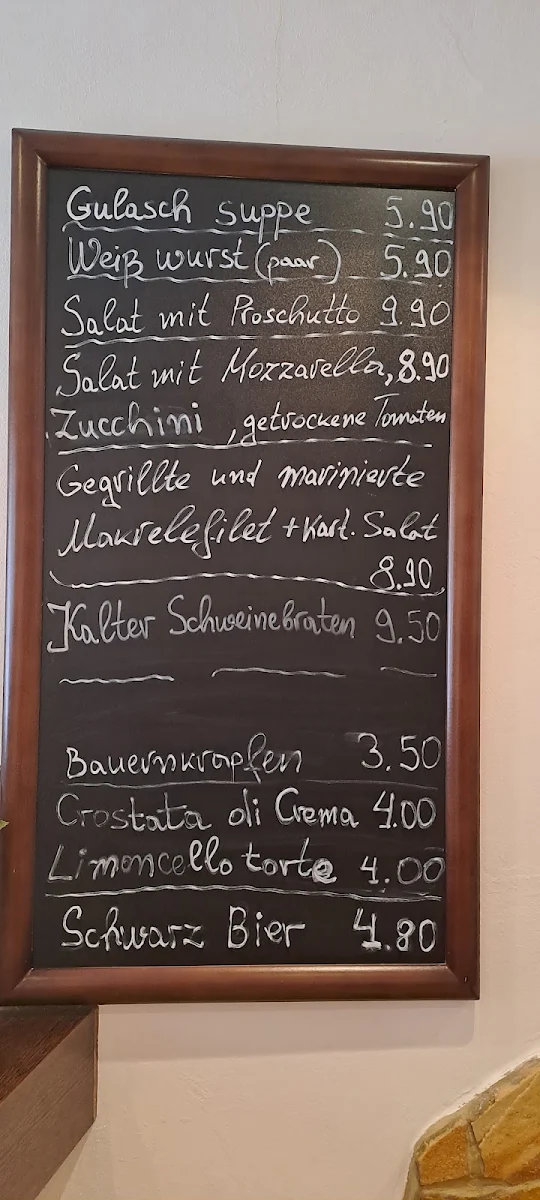 Gulasch suppe 5.90
Weiß wurst (paar) 5.90
Salat mit Proschutto 9.90
Salat mit Mozzarella, 8.90
Zucchini , getrockene Tomaten
Gegrillte und marinierte
Makrelefilet + Kart. Salat
8.90
Kalter Schweinebraten 9.50
Bauernkrapfen 3.50
Crostata di Crema 4.00
Limoncello torte 4.00
Schwarz Bier 4.80